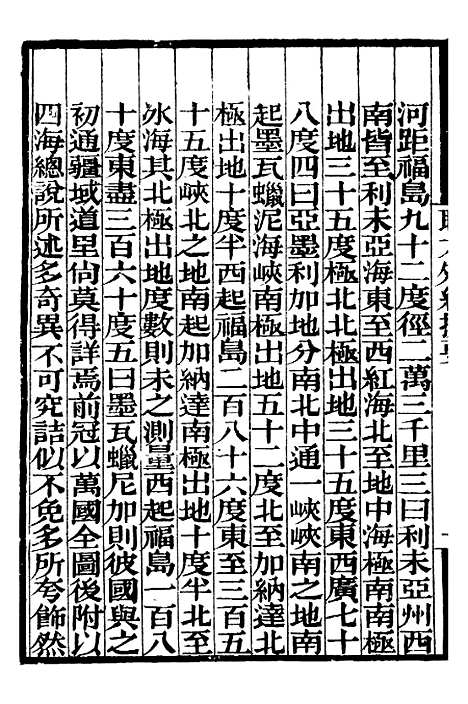 河距福島九十二度徑二萬三千里三曰利未亞州西
南皆至利未亞海東至西紅海北至地中海極南南極
出地三十五度極北北極出地三十五度東西廣七十
八度四曰亞墨利加地分南北中通一峽峽南之地南
起墨瓦蠟泥海峽南極出地五十二度北至加納達北
極出地十度半西起福島二百八十六度東至三百五
十五度峽北之地南起加納達南極出地十度半北至
冰海其北極出地度數則未之測量西起福島一百八
十度東盡三百六十度五曰墨瓦蠟尼加則彼國與之
初通疆域道里尙莫得詳焉前冠以萬國全圖後附以
四海總說所述多奇異不可究詰似不免多所夸飾然